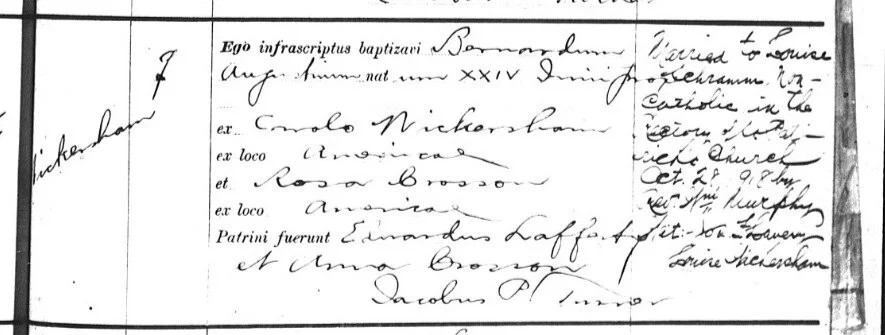 Wickersham
7
Ego infrascriptus baptizavi Bernardum
Augustinum nat um XXIV Junii
ex Carolo Wickersham
ex loco Americae
et Rosa Crosson
ex loco Americae
Patrini fuerunt Edwardus Lafferty
et Anna Crosson
Jacobus P Turner
Married to Louise
Schramm Non-
Catholic in the
Rectory of St Pat-
rick's Church
Oct. 28 918 by
Rev. Wm Murphy
Wit:
Louise Wickersham